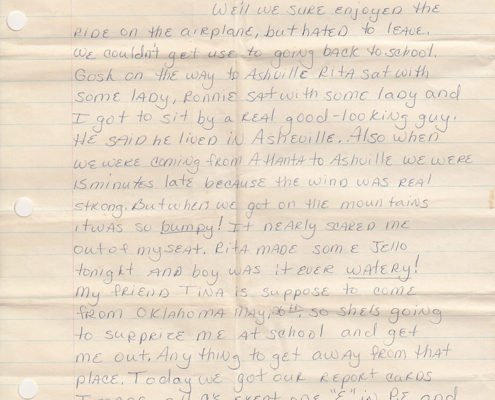 We'll we sure enjoyed the
ride on the airplane, but hated to leave.
We couldn't get use to going back to school.
Gosh on the way to Ashville Rita sat with
some lady, Ronnie sat with some lady and
I got to sit by a real good-looking guy.
He said he lived in Asheville. Also when
we were coming from Atlanta to Ashville we were
15 minutes late because the wind was real
strong. But when we got on the mountains
it was so bumpy! It nearly scared me
out of my seat. Rita made some Jello
tonight and boy was it ever watery!
My friend Tina is suppose to come
from Oklahoma May, 26th, so she's going
to supprize me at school and get
me out. Any thing to get away from that
place. Today we got our report cards
I all except one "E" in P.E and